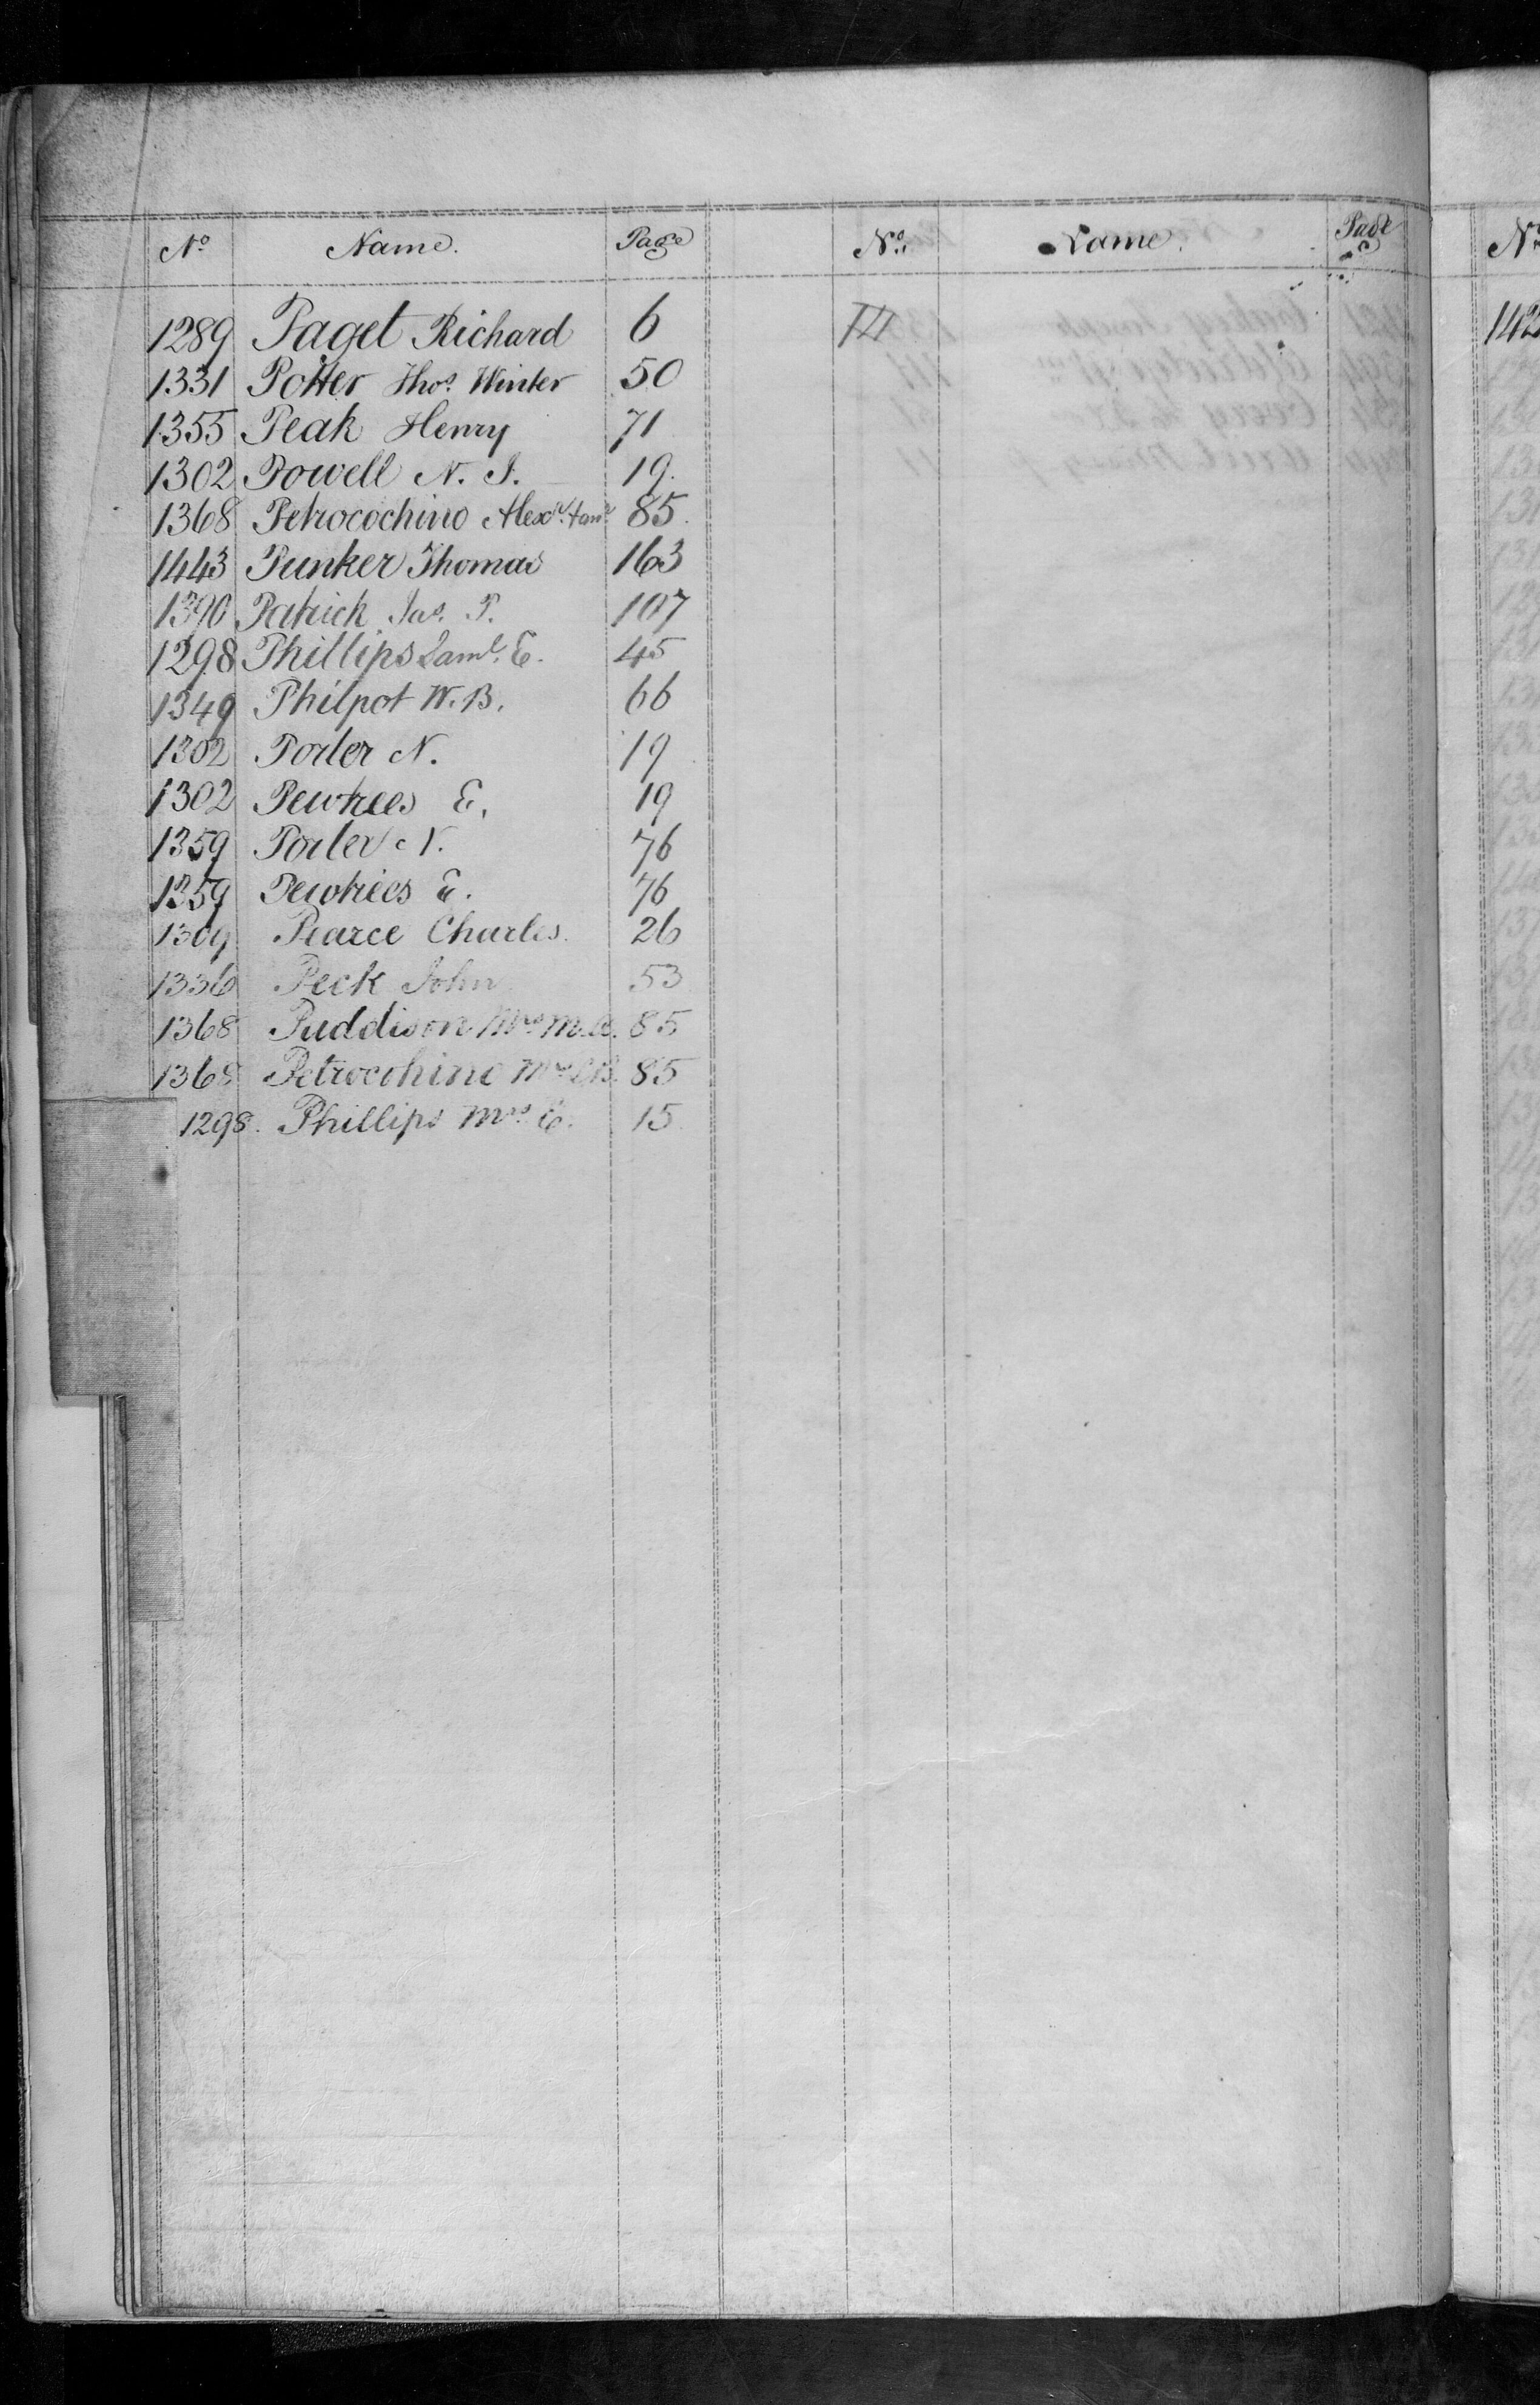 No Name. Page No. Name. Page No
1289 Paget Richard 6
1331 Potter Thos. Winter 50
1355 Peak Henry 71
1302 Powell N. J. 19.
1368 Petrocochino Alexr. & 85.
1443 Punker Thomas 163
1390 Patrick Jas. P. 107
1298 Phillips Saml. E. 45
1349 Philpot W. B. 66
1302 Porter N. 19
1302 Pewtrees E. 19
1359 Porter N. 76
1359 Pewtrees E. 76
1309 Pearce Charles. 26
1336 Peck John 53
1368 Puddison Mrs M. A. 85
1368 Petrocohino Mrs 85
1298. Phillips Mrs E. 15